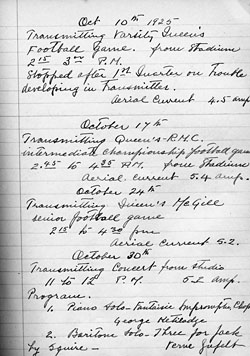 Oct 10th 1925
Transmitting Varsity Queen's
Football Game. from Stadium
2 15 3 00 P.M.
Stopped after 1st Quarter on Trouble
developing in Transmitter.
Aerial Current 4.5 amp.
October 17th
Transmitting Queen's - R.M.C.
intermediate championship football game
2.45 to 4 35 P.M. from Stadium
Aerial Current 5.4 amp.
October 24th
Transmitting Queen's McGill
senior football game
2 15 to 4 30 pm
Aerial Current 5.2.
October 30th
Transmitting Concert from studio
11 to 12 P.M. 5.2 amp.
Program.
1. Piano Solo - Fantaisie Impromptu, Chop
George Ketiladze
2. Baritone Solo - Three for Jack
by Squire -